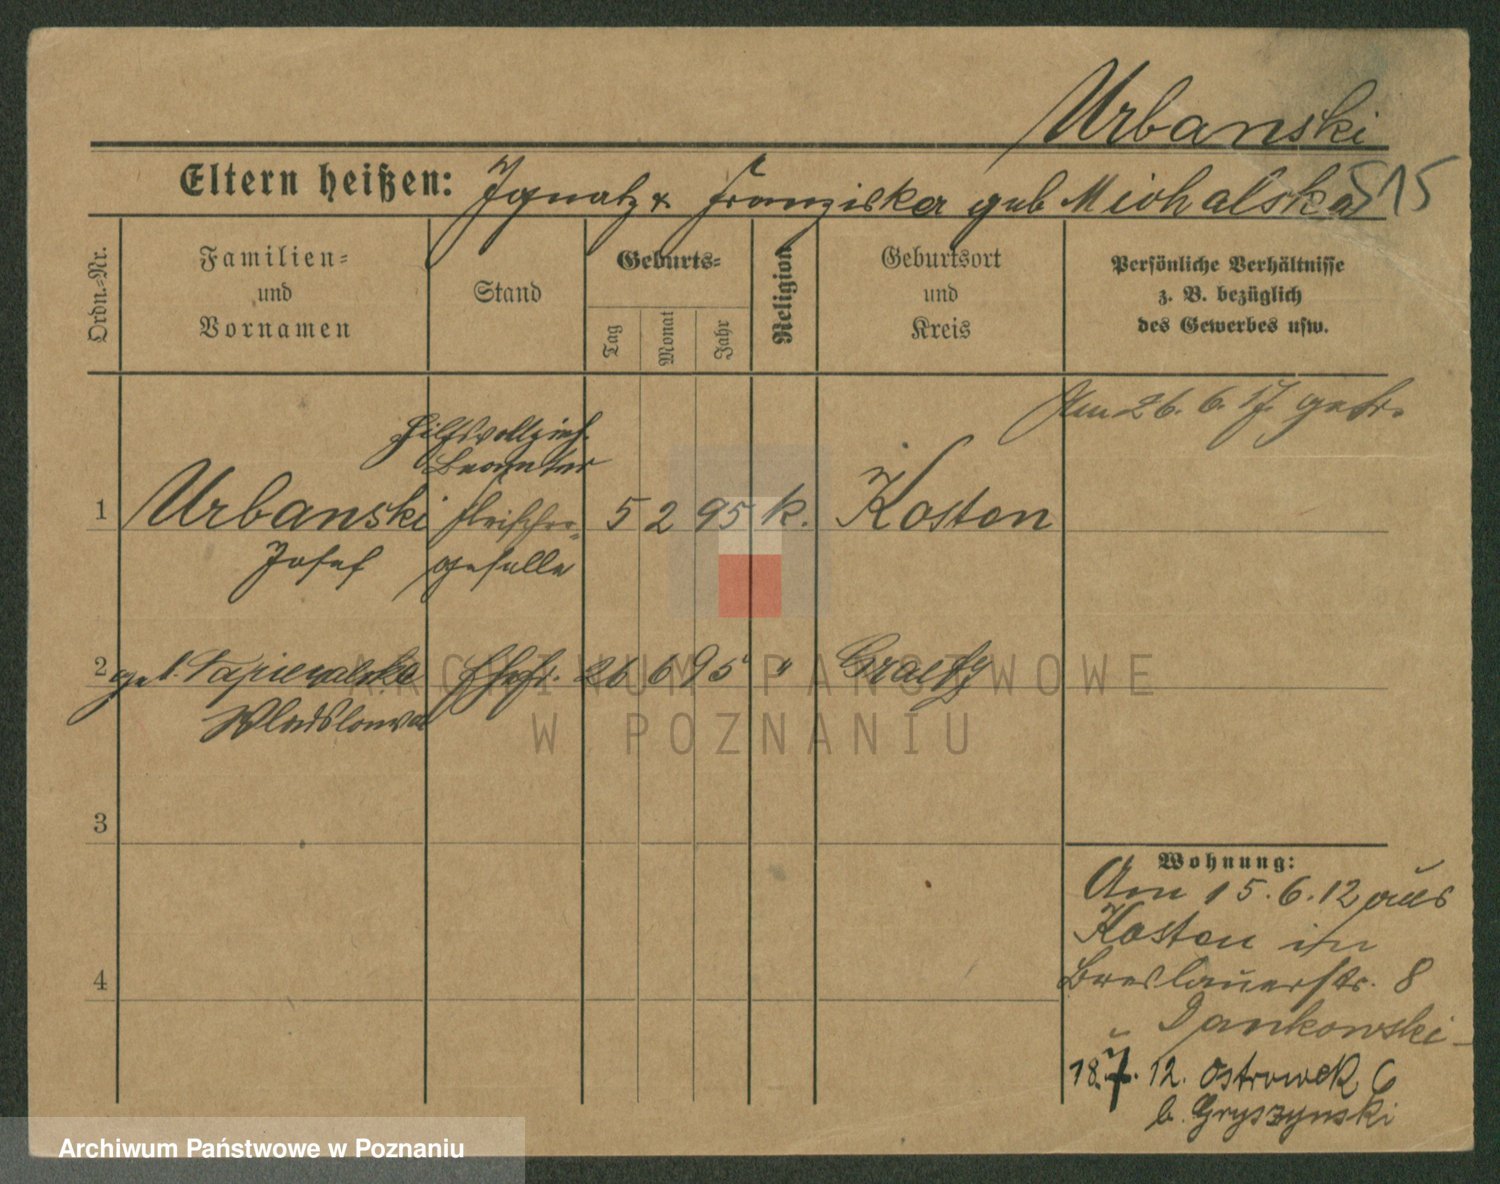 Urbanski
Eltern heißen: Ignatz & Franziska geb Michalska 515
Ordn.-Nr.
Familien-
und
Vornamen
Stand
Geburts-
Tag
Monat
Jahr
Religion
Geburtsort
und
Kreis
Persönliche Verhältnisse
z. B. bezüglich
des Gewerbes usw.
Am 26. 6. 17. getr.
Hilfsvollzieh.
Beamter
1 Urbanski Fleischer- 5 2 95 k. Kosten
Josef geselle
2 geb. Ehefr. 26 6 95 " Graetz
Wladslowa
3
4
Wohnung:
Am 15.6.12 aus
Kosten in
Breslauerstr. 8
Jankowski
18.7.12. Ostrowek 6
b. Gryszynski
ARCHIWUM PAŃSTWOWE
W POZNANIU
Archiwum Państwowe w Poznaniu